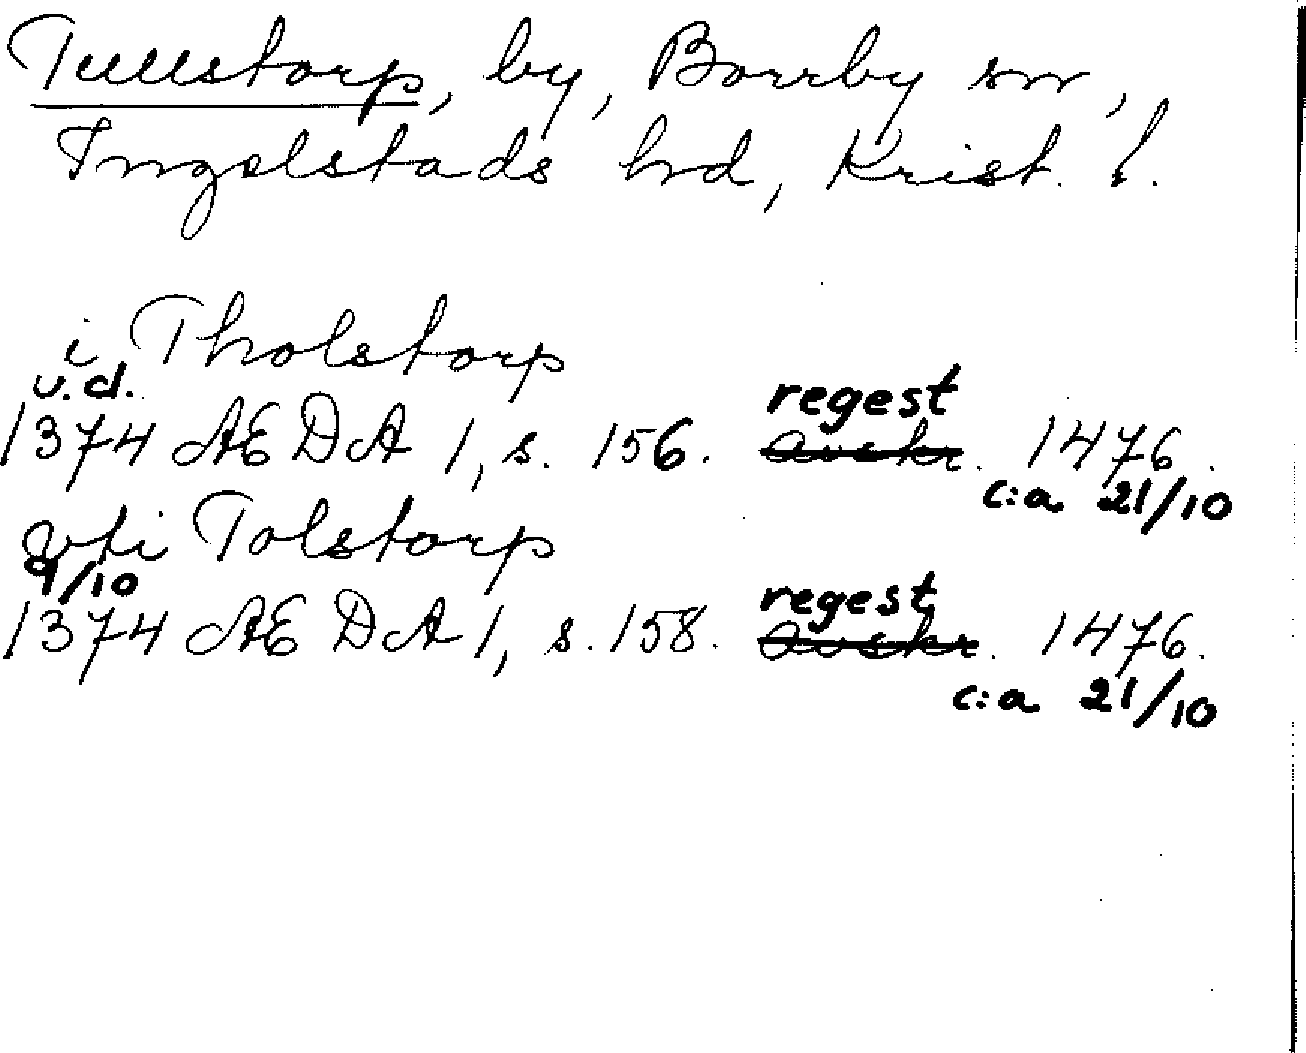 Tullstorp, by, Borrby sn,
Ingelstads hd, Krist. l.
i Tholstorp
u.d.
regest
1374 ÆDA 1, s. 156. avskr. 1476.
c:a 21/10
vti Tolstorp
9/10
regest
1374 ÆDA 1, s. 158. avskr. 1476.
c:a 21/10